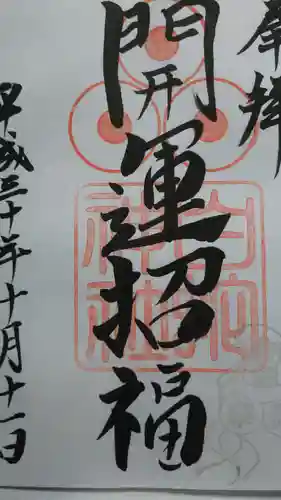 奉拝
開運招福
白蛇
神社
平成三十年十月十一日